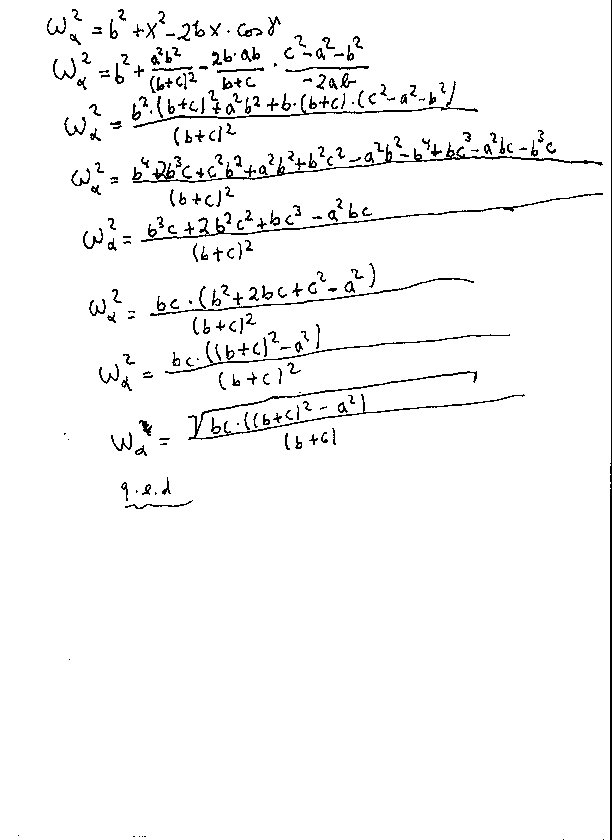 ω_α² = b² + x² - 2bx · cos γ
ω_α² = b² + a²b²/(b+c)² - 2b·ab/(b+c) · (c²-a²-b²)/(-2ab)
ω_α² = (b²·(b+c)² + a²b² + b·(b+c)·(c²-a²-b²))/(b+c)²
ω_α² = (b⁴+2b³c+c²b²+a²b²+b²c²-a²b²-b⁴+bc³-a²bc-b³c)/(b+c)²
ω_α² = (b³c+2b²c²+bc³-a²bc)/(b+c)²
ω_α² = (bc·(b²+2bc+c²-a²))/(b+c)²
ω_α² = (bc·((b+c)²-a²))/(b+c)²
ω_α = √(bc·((b+c)²-a²))/(b+c)
q.e.d